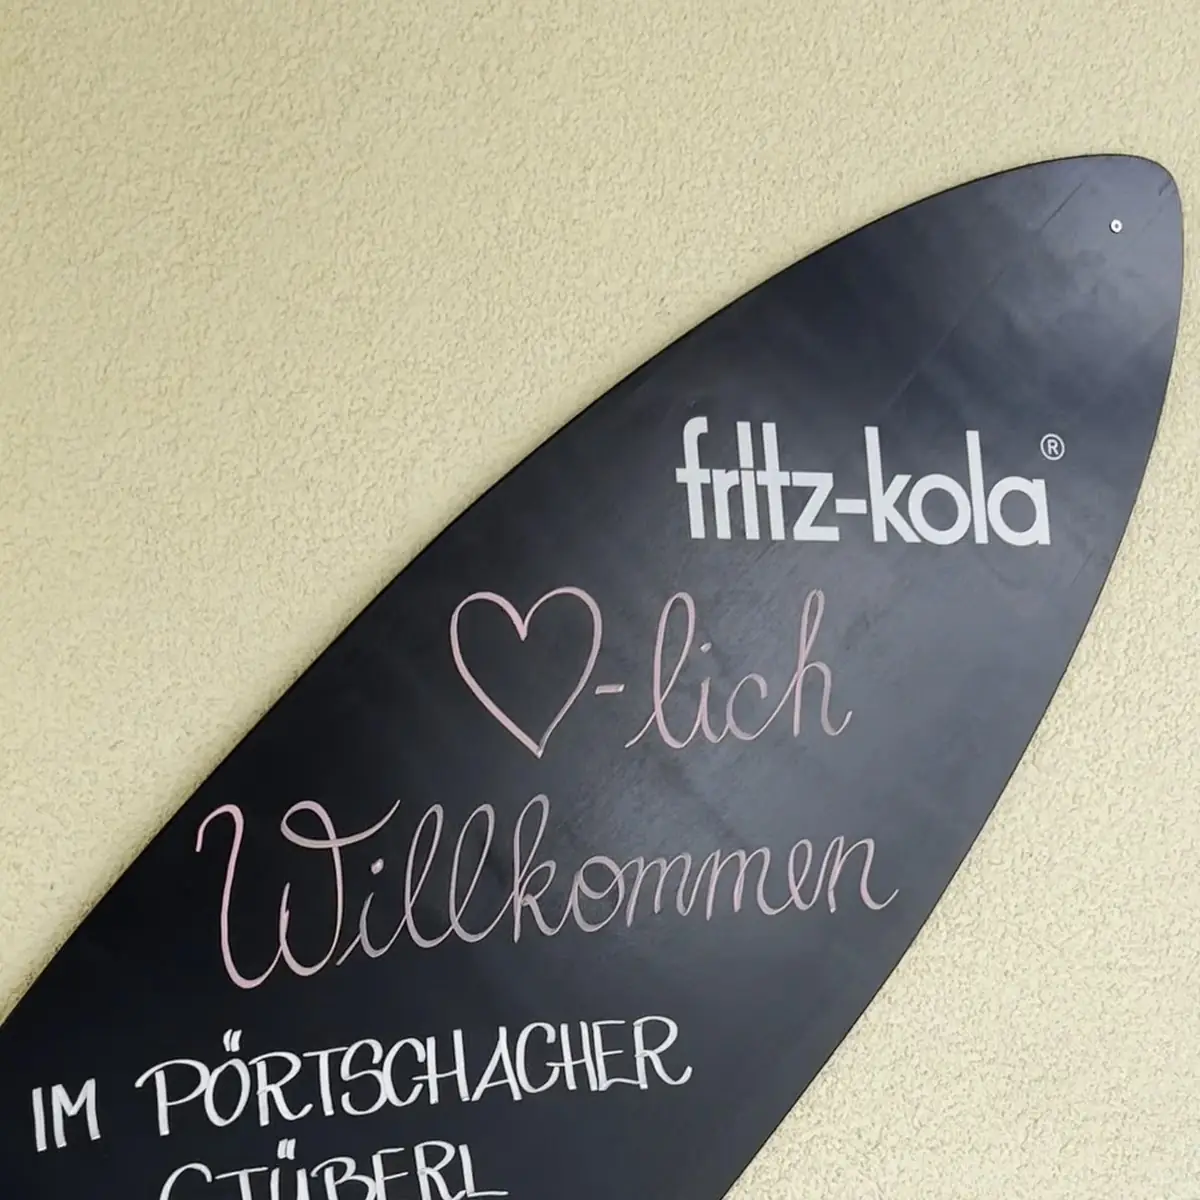 fritz-kola®
♡-lich
Willkommen
IM PÖRTSCHACHER
STÜBERL